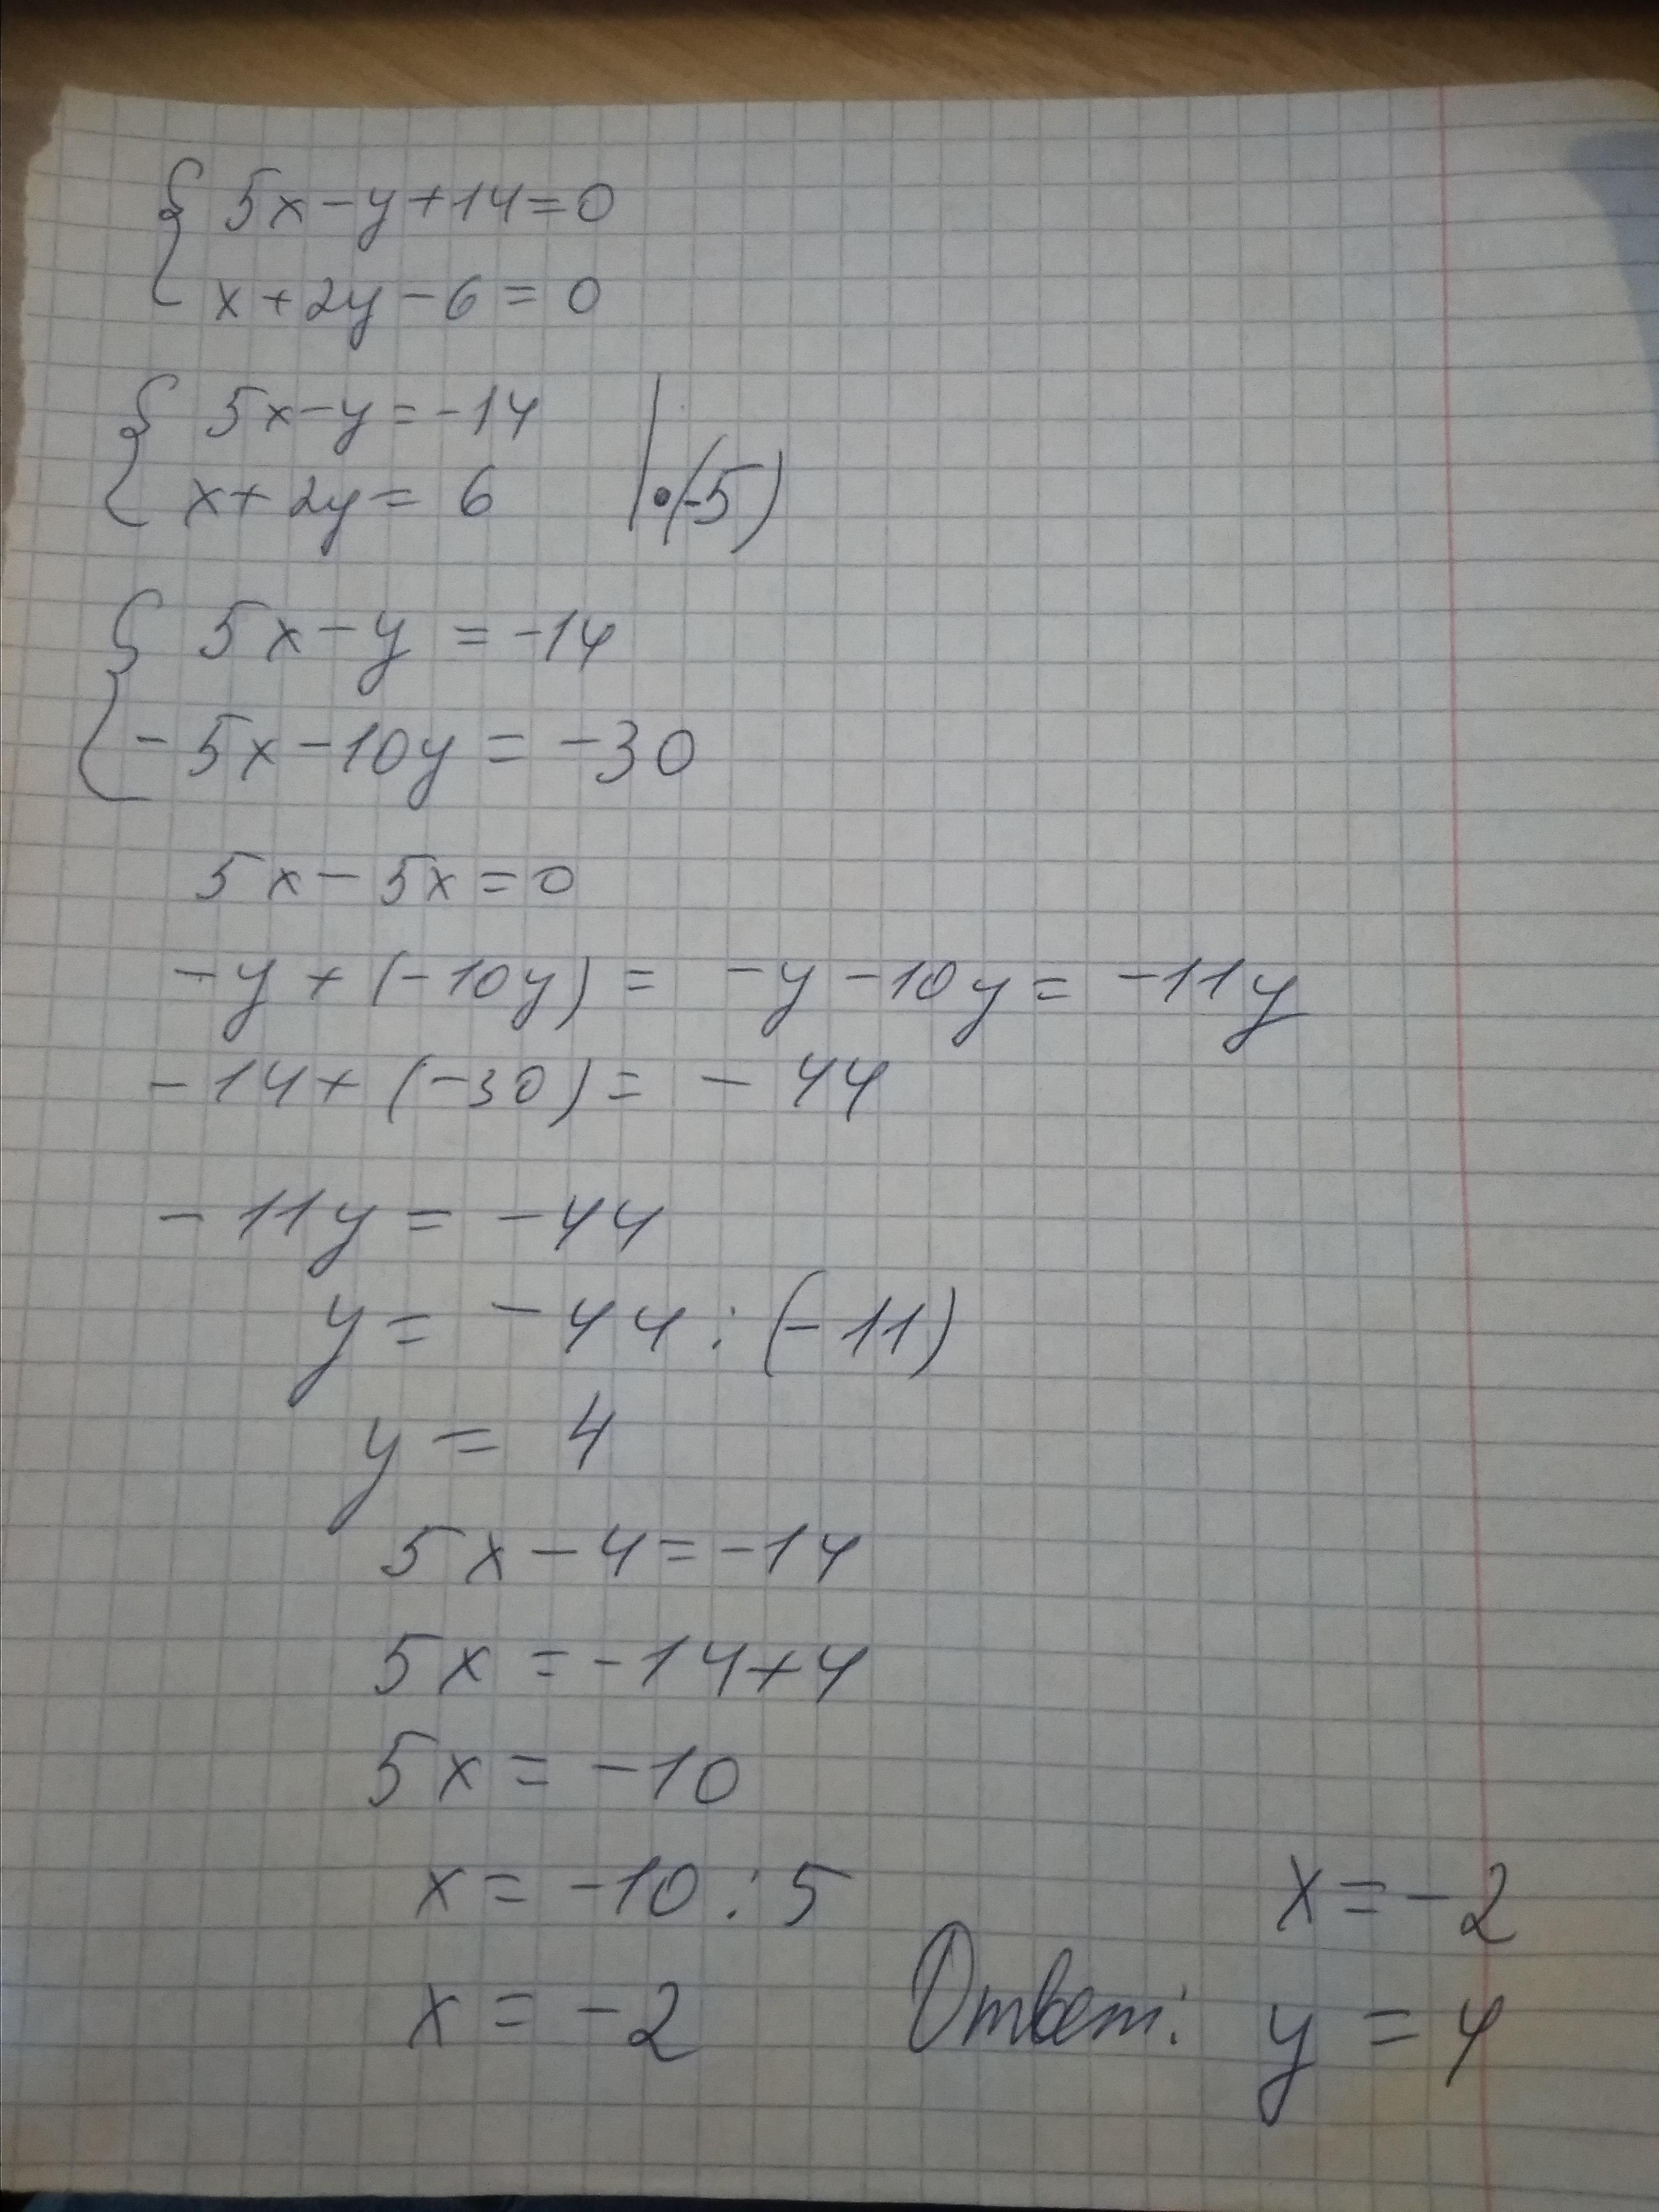 { 5x-y+14=0
x+2y-6=0
{ 5x-y=-14
x+2y=6 |•(-5)
{ 5x-y=-14
-5x-10y=-30
5x-5x=0
-y+(-10y)= -y-10y=-11y
-14+(-30)= -44
-11y=-44
y=-44:(-11)
y=4
5x-4=-14
5x=-14+4
5x=-10
x=-10:5
x=-2
x=-2
Ответ: y=4